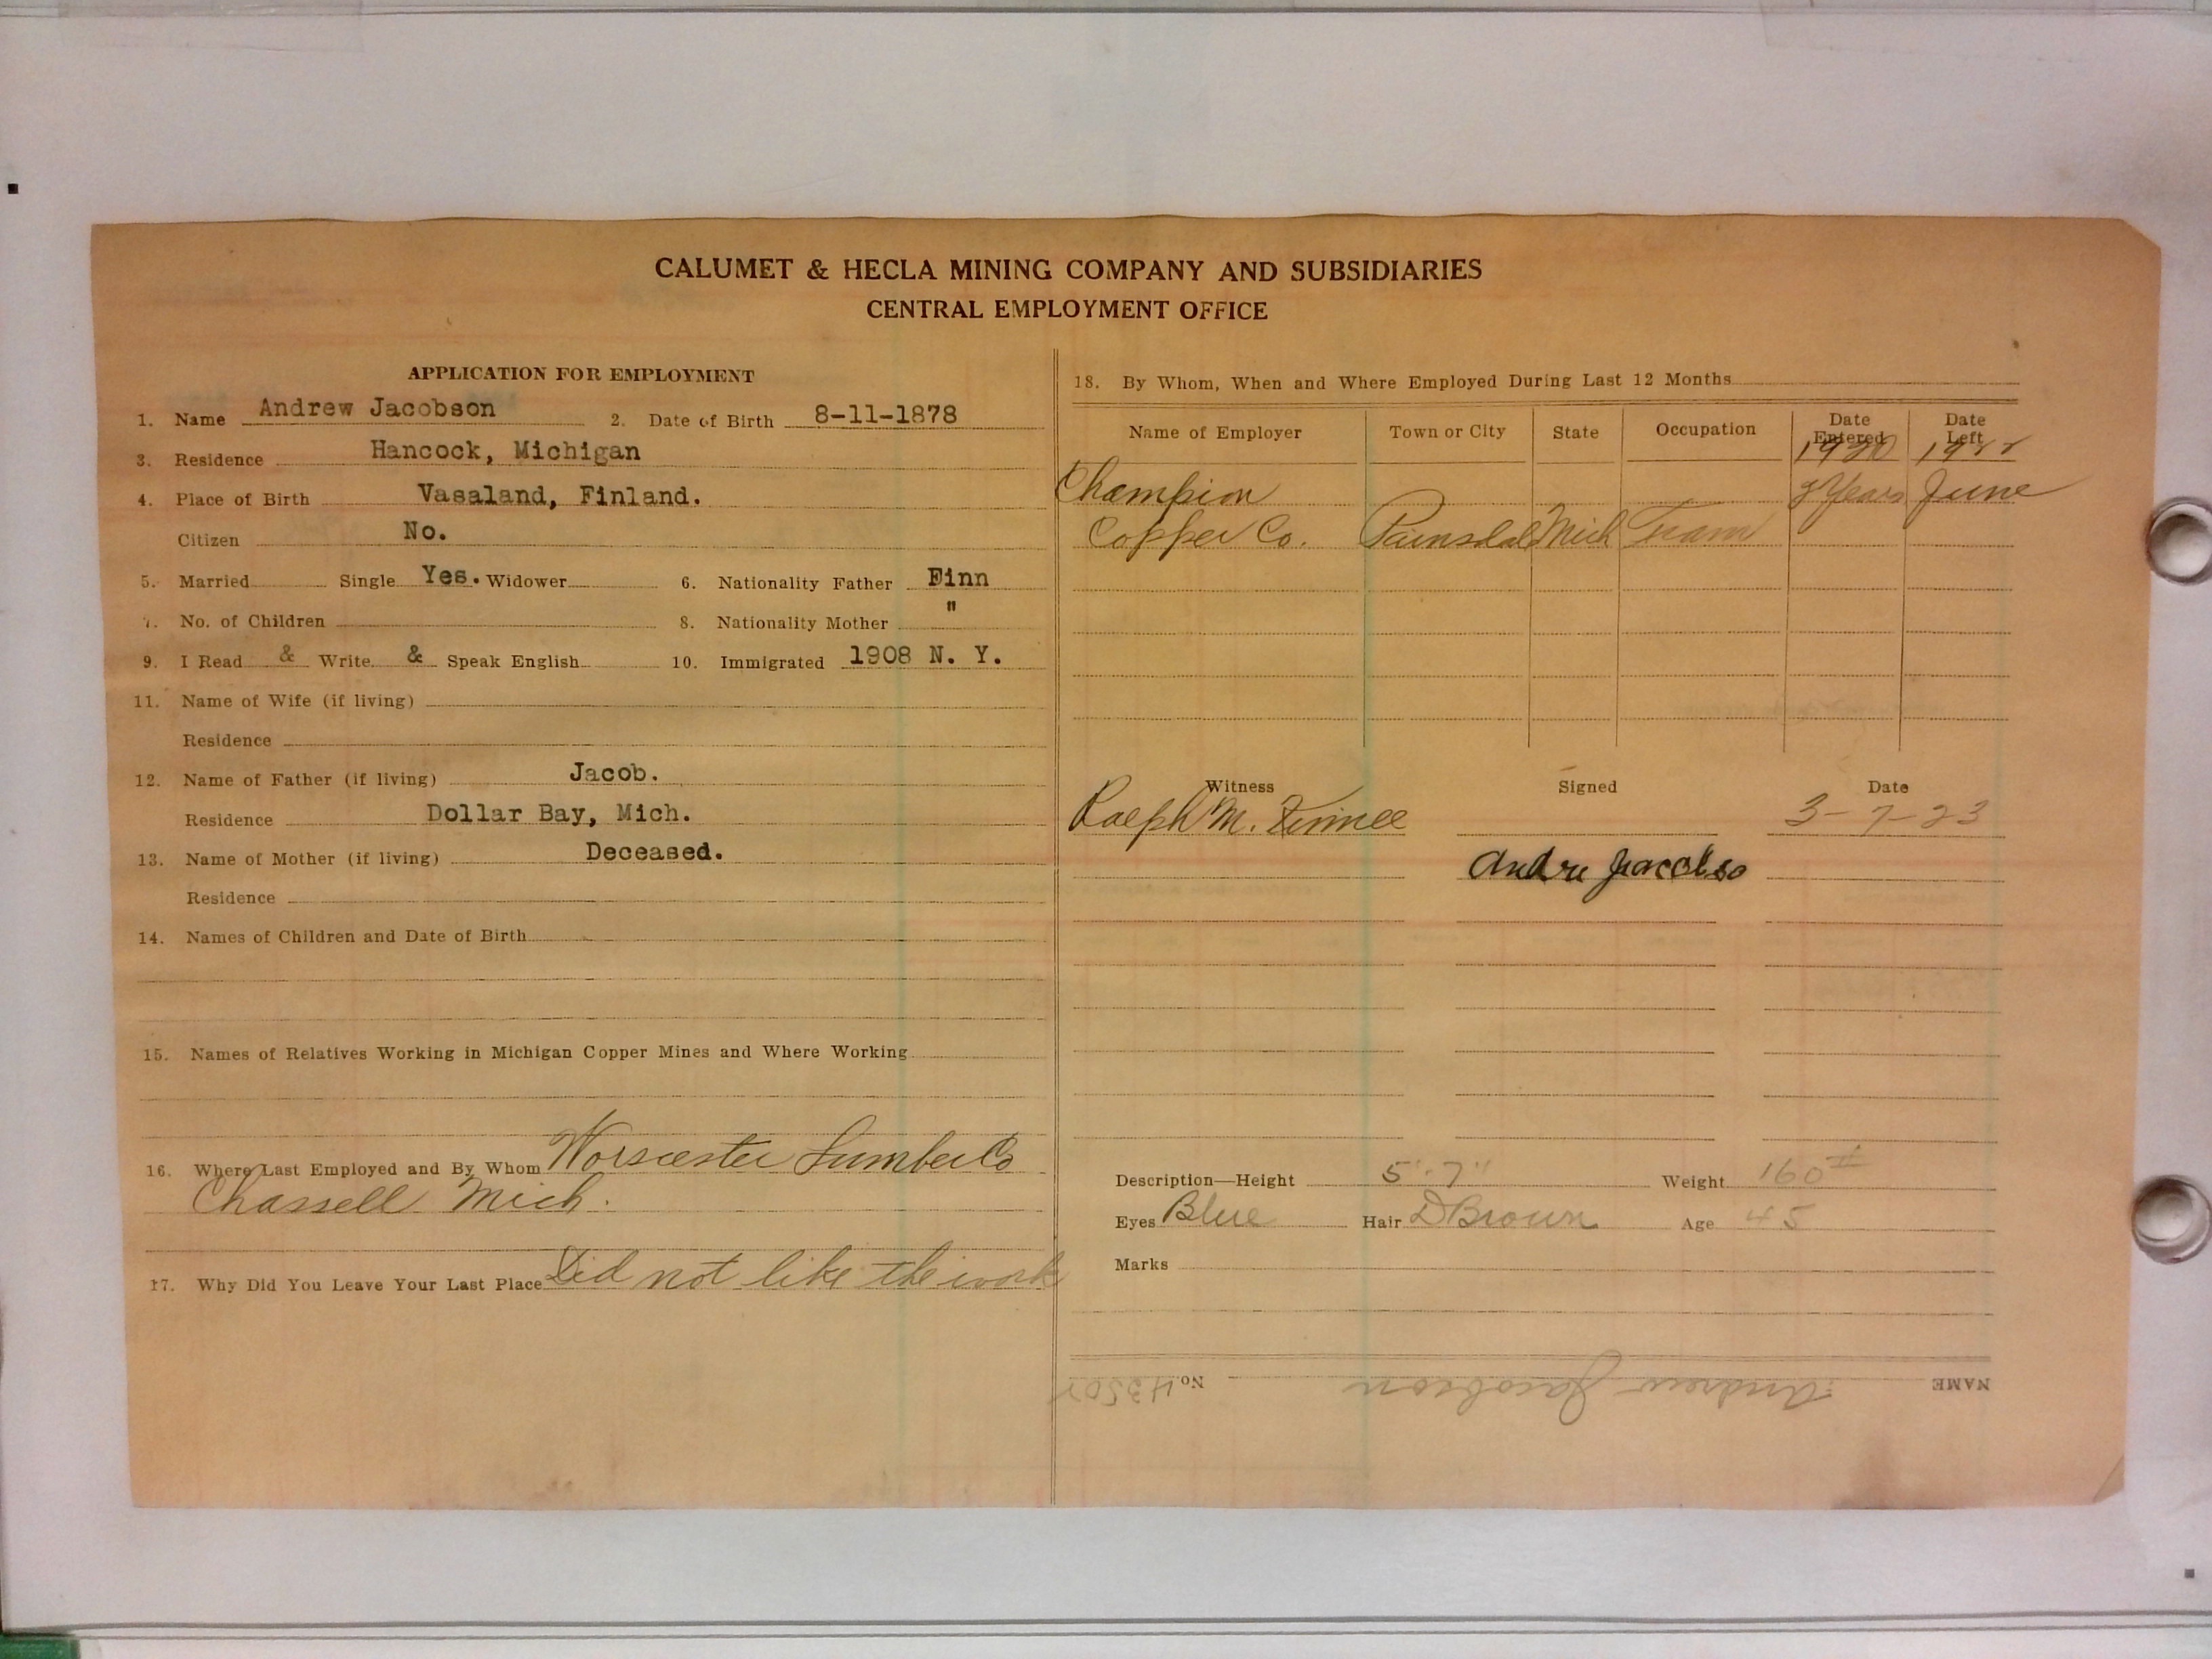 CALUMET & HECLA MINING COMPANY AND SUBSIDIARIES
CENTRAL EMPLOYMENT OFFICE
APPLICATION FOR EMPLOYMENT
1. Name Andrew Jacobson 2. Date of Birth 8-11-1878
3. Residence Hancock, Michigan
4. Place of Birth Vasaland, Finland.
Citizen No.
5. Married Single Yes. Widower 6. Nationality Father Finn
7. No. of Children 8. Nationality Mother "
9. I Read & Write & Speak English 10. Immigrated 1908 N. Y.
11. Name of Wife (if living)
Residence
12. Name of Father (if living) Jacob.
Residence Dollar Bay, Mich.
13. Name of Mother (if living) Deceased.
Residence
14. Names of Children and Date of Birth
15. Names of Relatives Working in Michigan Copper Mines and Where Working
16. Where Last Employed and By Whom Worscester Lumber Co
Chassell Mich.
17. Why Did You Leave Your Last Place Did not like the work
18. By Whom, When and Where Employed During Last 12 Months
Name of Employer Town or City State Occupation Date Entered Date Left
1920 1922
Champion 2 Years June
Copper Co. Painsdale Mich Tram
Witness Signed Date
Ralph M. 3-7-23
Andru Jacobso
Description—Height 5'-7" Weight 160#
Eyes Blue Hair D Brown Age 45
Marks
NAME Andrew Jacobson No.